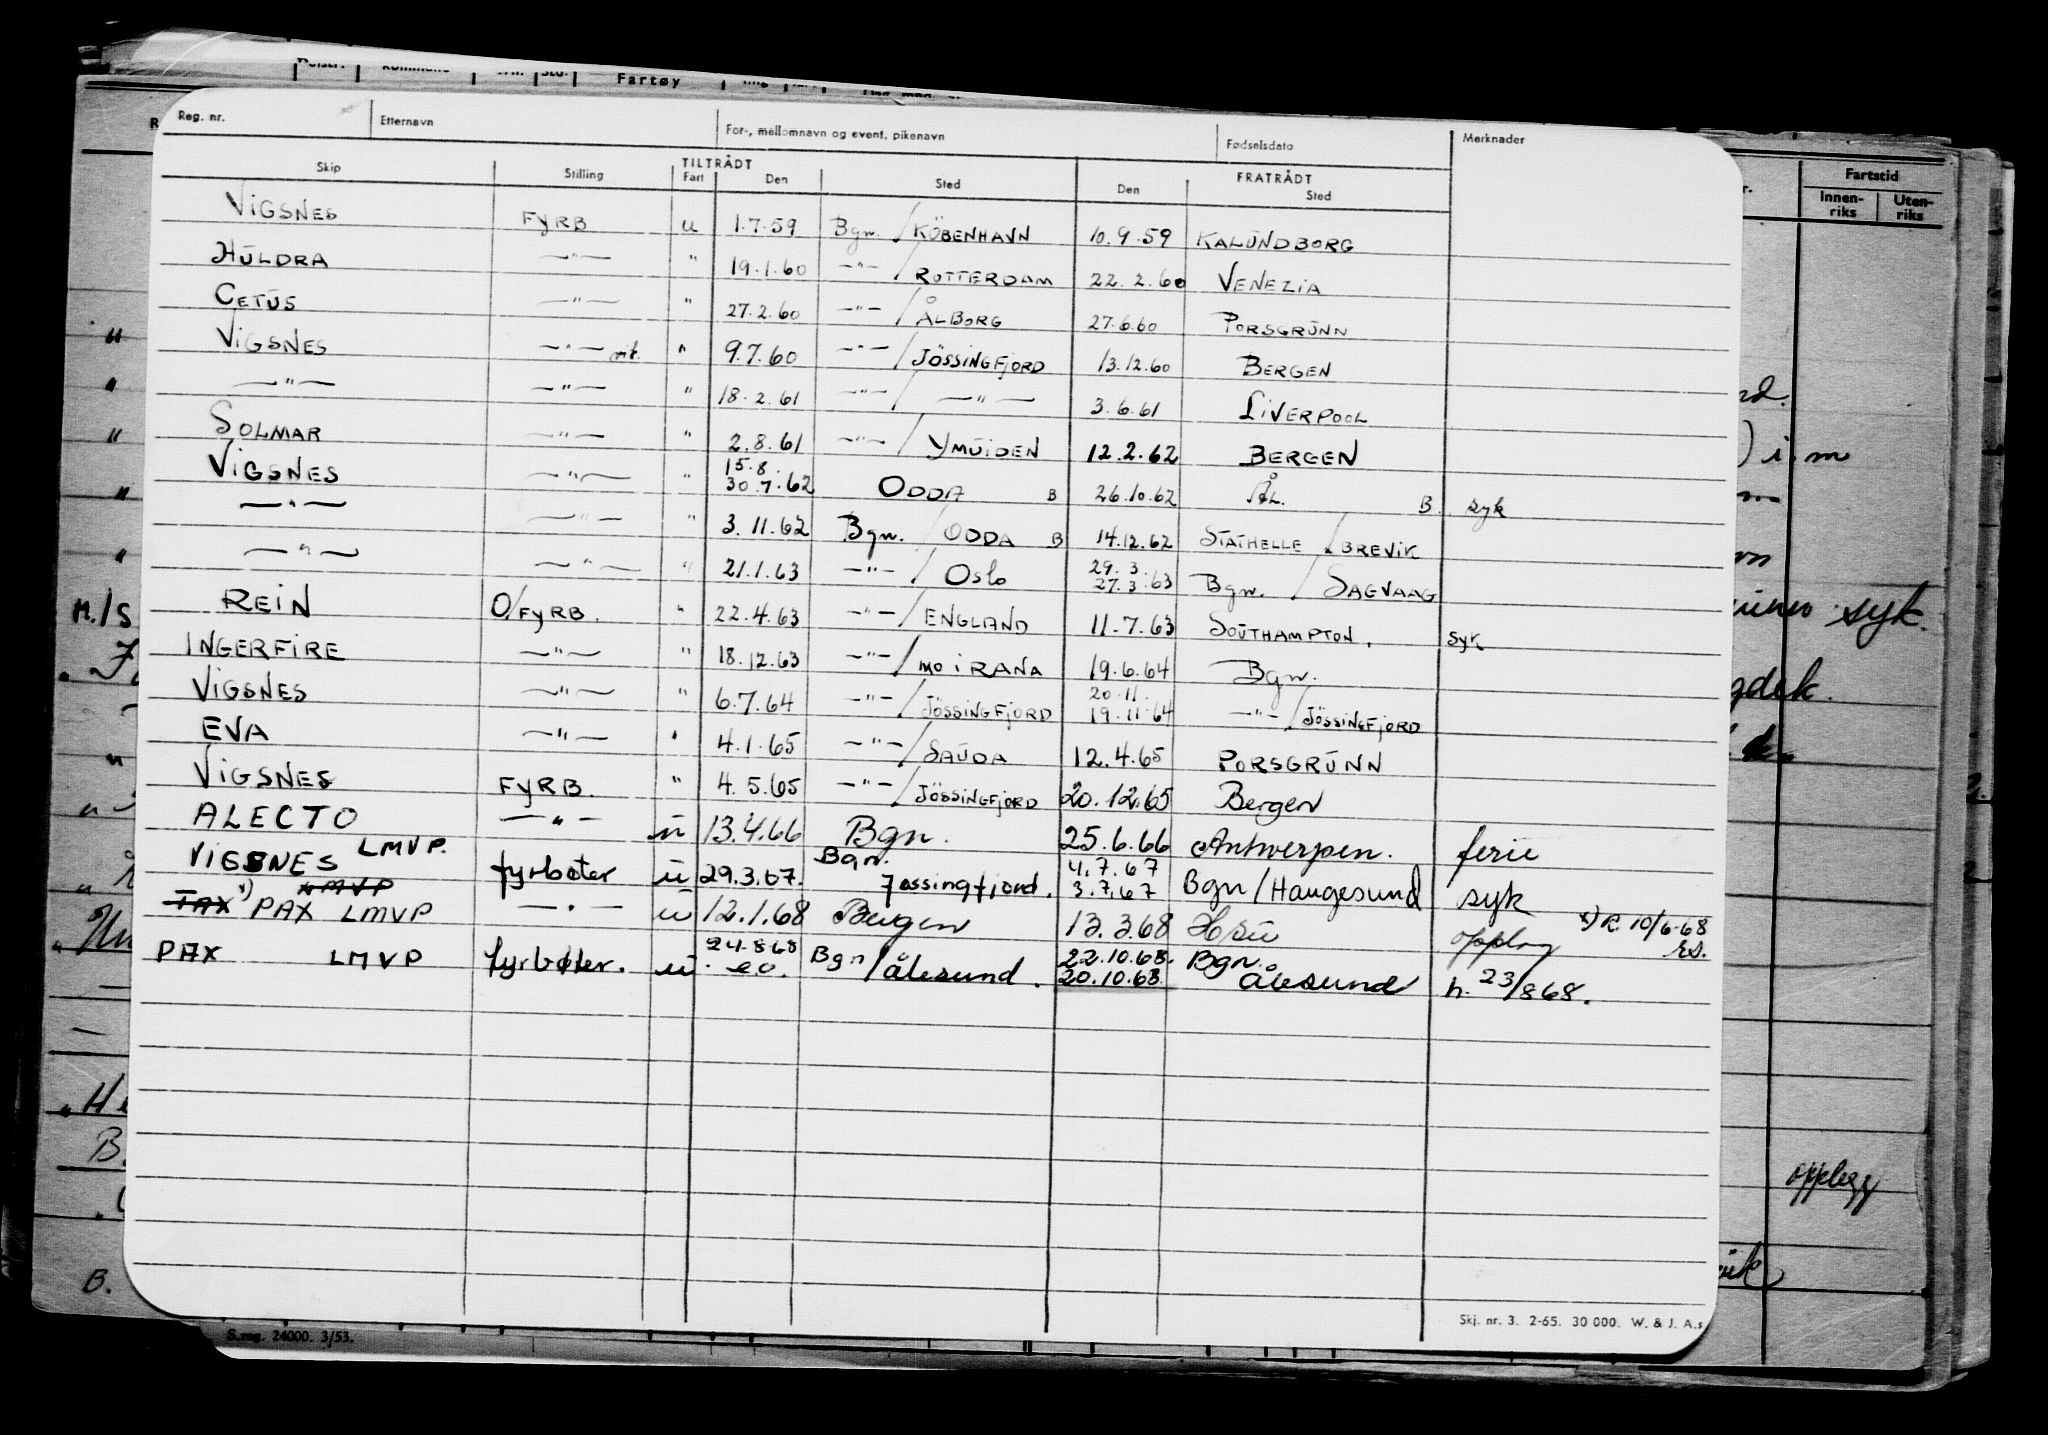 Fartøy
Reg. nr. Etternavn For-, mellomnavn og event. pikenavn Fødselsdato Merknader
TILTRÅDT FRATRÅDT
Skip Stilling Fart Den Sted Den Sted
VIGSNES FYRB u 1.7.59 Bgn. / KÖBENHAVN 10.9.59 KALUNDBORG
HULDRA —"— " 19.1.60 —"— / ROTTERDAM 22.2.60 VENEZIA
CETUS —"— " 27.2.60 —"— / ÅLBORG 27.6.60 PORSGRUNN
VIGSNES —"— " 9.7.60 —"— / JÖSSINGFJORD 13.12.60 BERGEN
—"— —"— " 18.2.61 —"— / —"— 3.6.61 LIVERPOOL
SOLMAR —"— " 2.8.61 —"— / YMUIDEN 12.2.62 BERGEN
15.8.
VIGSNES —"— " 30.7.62 ODDA B 26.10.62 ÅL. B. syk
—"— —"— " 3.11.62 Bgn. / ODDA B 14.12.62 STATHELLE / BREVIK
29.3.
—"— —"— " 21.1.63 —"— / Oslo 27.3.63 Bgn. / SAGVAAG
REIN O/FYRB. " 22.4.63 —"— / ENGLAND 11.7.63 SOUTHAMPTON. syk
INGERFIRE —"— " 18.12.63 —"— / MO I RANA 19.6.64 Bgn.
20.11.
VIGSNES —"— " 6.7.64 —"— / JÖSSINGFJORD 19.11.64 —"— / JÖSSINGFJORD
EVA —"— " 4.1.65 —"— / SAUDA 12.4.65 PORSGRUNN
VIGSNES FYRB. " 4.5.65 —"— / JÖSSINGFJORD 20.12.65 Bergen
ALECTO —"— u 13.4.66 Bgn. 25.6.66 Antwerpen. ferie
LMVP. Bgn. 4.7.67
VIGSNES fyrbøter u 29.3.67. Jøssingfjord. 3.7.67 Bgn / Haugesund syk
TAX x) PAX LMVP —"— u 12.1.68 Bergen 13.3.68 Hsu opplag x) R. 10/6-68 rs.
24.8.68 Bgn 22.10.68. Bgn.
PAX LMVP fyrbøter. u / ålesund. 20.10.68. Ålesund h. 23/8 68.
Skj. nr. 3. 2-65. 30 000. W. & J. A.s
S.reg. 24000. 3/53.
Fartstid
Innen-riks Uten-riks
i m
M/S
syk.
opplegg
B.